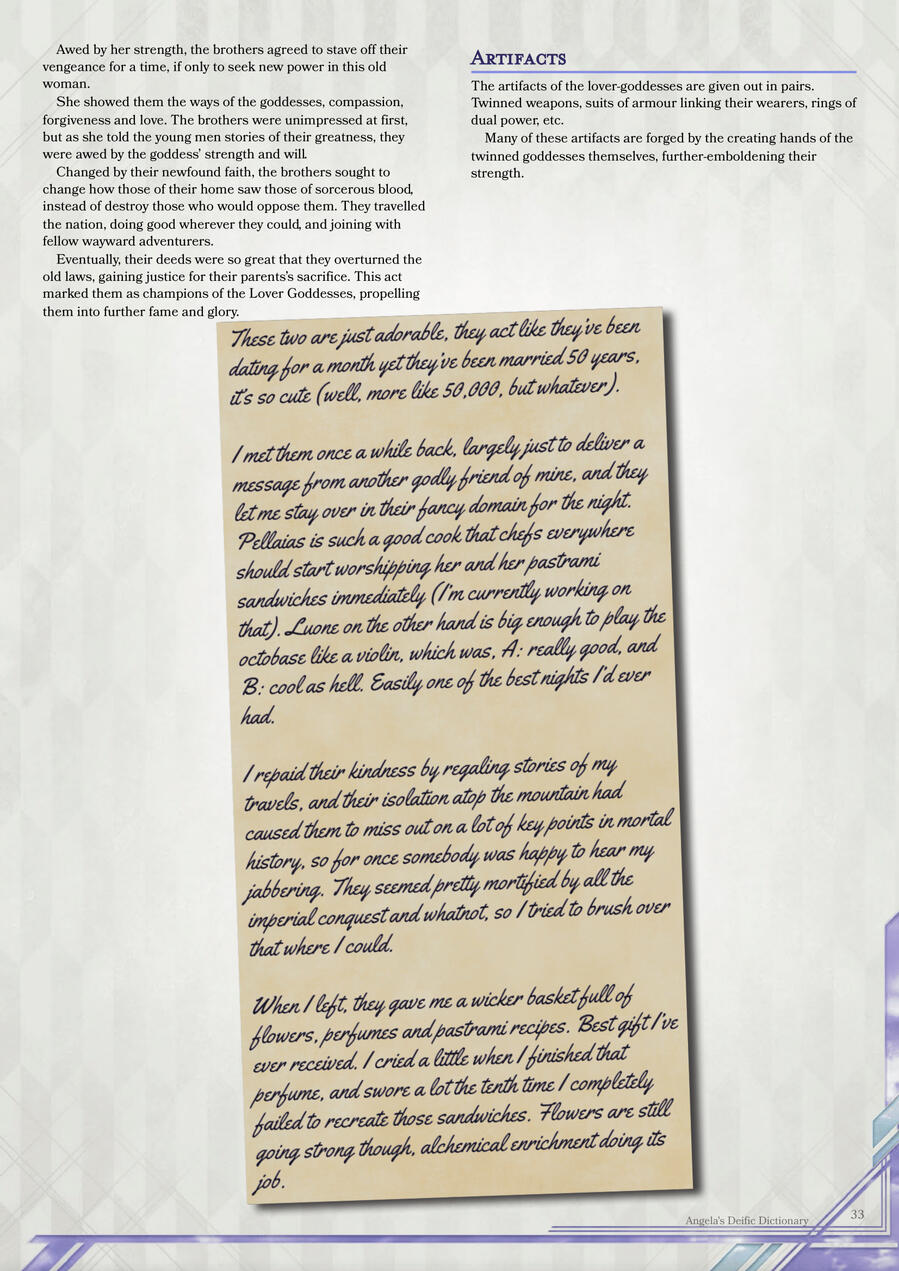 Awed by her strength, the brothers agreed to stave off their
vengeance for a time, if only to seek new power in this old
woman.
She showed them the ways of the goddesses, compassion,
forgiveness and love. The brothers were unimpressed at first,
but as she told the young men stories of their greatness, they
were awed by the goddess' strength and will.
Changed by their newfound faith, the brothers sought to
change how those of their home saw those of sorcerous blood,
instead of destroy those who would oppose them. They travelled
the nation, doing good wherever they could, and joining with
fellow wayward adventurers.
Eventually, their deeds were so great that they overturned the
old laws, gaining justice for their parents's sacrifice. This act
marked them as champions of the Lover Goddesses, propelling
them into further fame and glory.
Artifacts
The artifacts of the lover-goddesses are given out in pairs.
Twinned weapons, suits of armour linking their wearers, rings of
dual power, etc.
Many of these artifacts are forged by the creating hands of the
twinned goddesses themselves, further-emboldening their
strength.
These two are just adorable, they act like they've been
dating for a month yet they've been married 50 years,
it's so cute (well, more like 50,000, but whatever).
I met them once a while back, largely just to deliver a
message from another godly friend of mine, and they
let me stay over in their fancy domain for the night.
Pellaias is such a good cook that chefs everywhere
should start worshipping her and her pastrami
sandwiches immediately (I'm currently working on
that). Luone on the other hand is big enough to play the
octobase like a violin, which was, A: really good, and
B: cool as hell. Easily one of the best nights I'd ever
had.
I repaid their kindness by regaling stories of my
travels, and their isolation atop the mountain had
caused them to miss out on a lot of key points in mortal
history, so for once somebody was happy to hear my
jabbering. They seemed pretty mortified by all the
imperial conquest and whatnot, so I tried to brush over
that where I could.
When I left, they gave me a wicker basket full of
flowers, perfumes and pastrami recipes. Best gift I've
ever received. I cried a little when I finished that
perfume, and swore a lot the tenth time I completely
failed to recreate those sandwiches. Flowers are still
going strong though, alchemical enrichment doing its
job.
Angela's Deific Dictionary
33